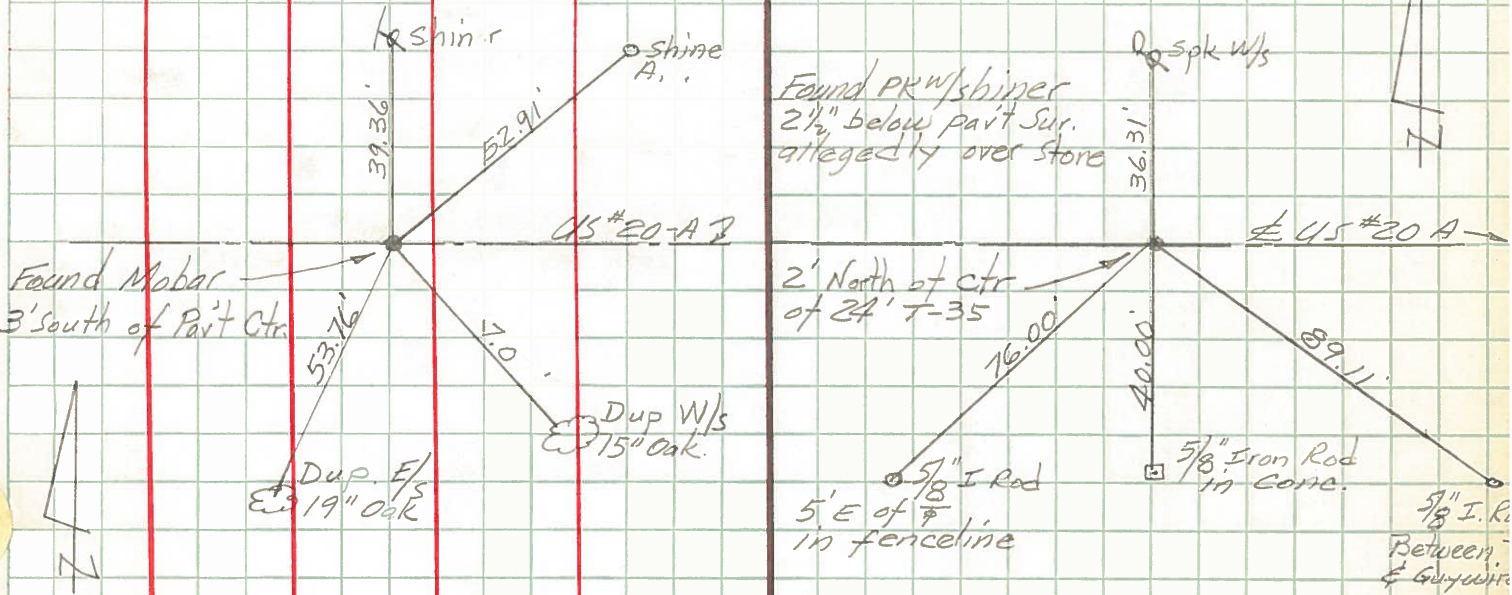 Shin r
39.36'
shine
A. .
52.91'
US #20-A
Found Mobar
3' South of Pav't Ctr.
53.76'
7.0
Dup W/s
15" Oak.
Dup. E/s
19" Oak
N
Spk W/s
Found PK W/shiner
2½" below pav't Sur.
allegedly over Stone
36.31'
N
℄ US #20 A
2' North of Ctr
of 24' T-35
76.00'
40.00'
89.11'
5/8" I Rod
5' E of
in fenceline
5/8" Iron Rod
in Conc.
5/8" I. R
Between
& Guywire